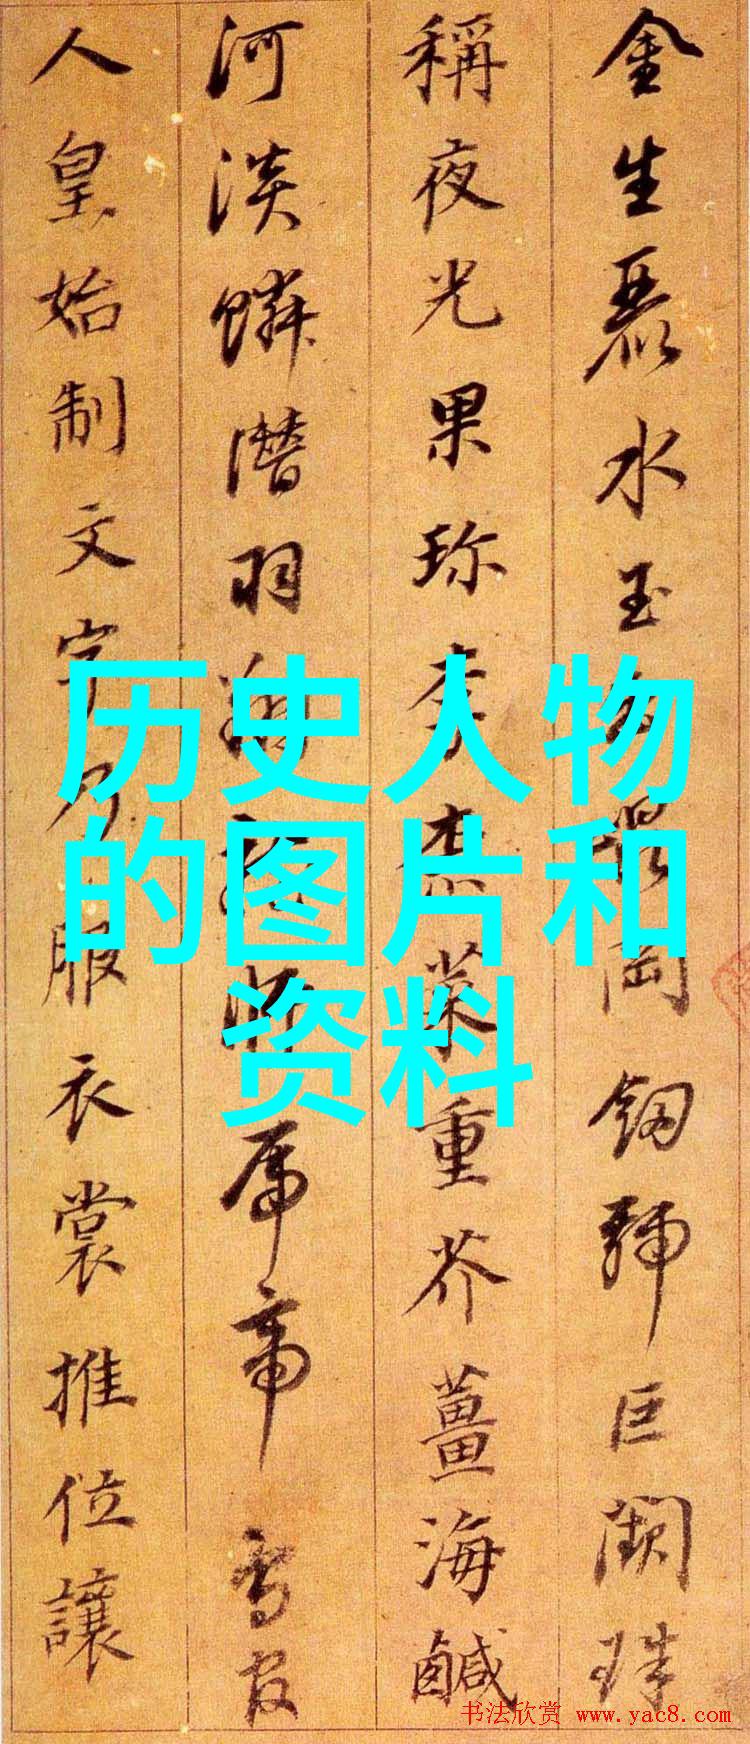 历史人物
的图片和
资料
金生麗水玉出崑岡劒號巨闕珠
稱夜光果珍李柰菜重芥薑海鹹
河淡鱗潛羽翔龍師帝鳥官
人皇始制文字乃服衣裳推位讓
书法欣赏 www.yac8.com